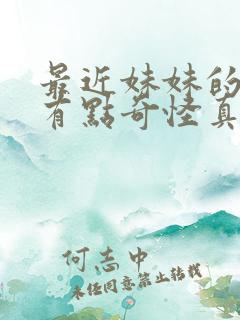 最近妹妹的
有點奇怪真
何志中
未經同意禁止轉載